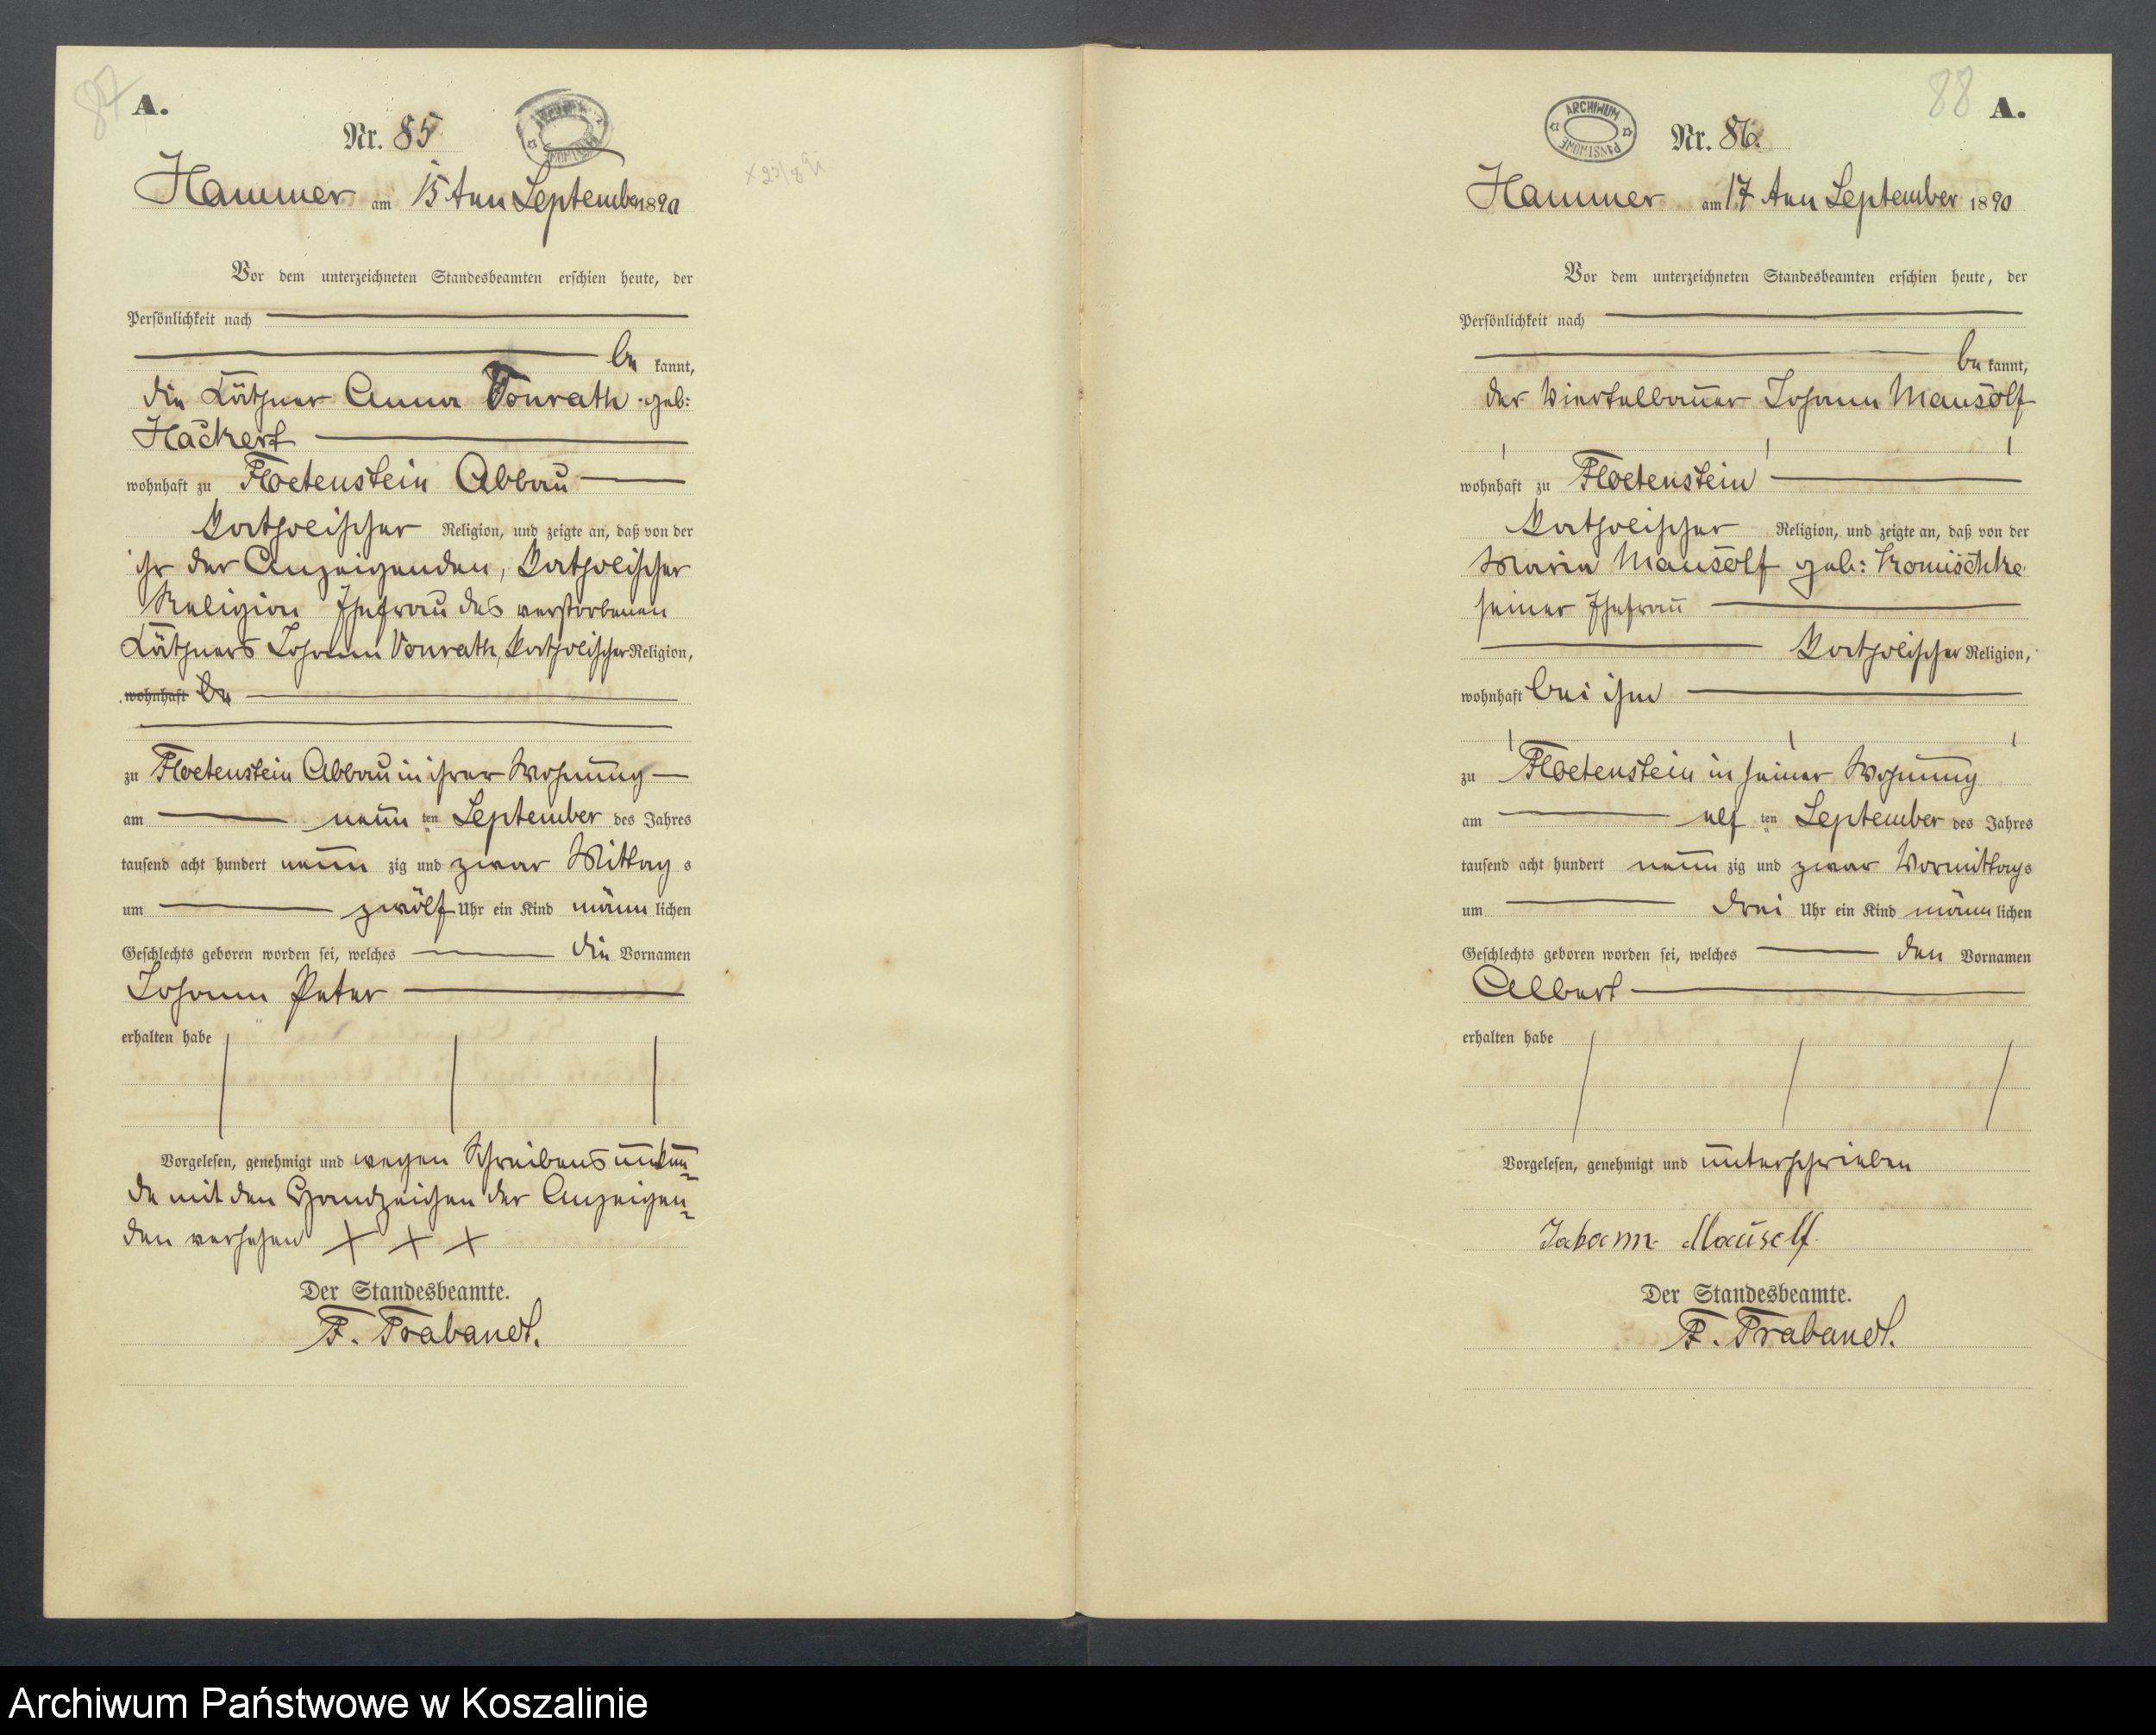 87
A.
Nr. 85
Hammer am 15 ten September 1890
Vor dem unterzeichneten Standesbeamten erschien heute, der
Persönlichkeit nach
be kannt,
die Käthner Anna Vonrath geb:
Hackert
wohnhaft zu Floetenstein Abbau
katholischer Religion, und zeigte an, daß von der
ihr der Anzeigenden, katholischer
Religion Ehefrau des verstorbenen
Käthners Johann Vonrath, katholischer Religion,
wohnhaft be
zu Floetenstein Abbau in ihrer Wohnung
am neun ten September des Jahres
tausend acht hundert neun zig und zwar Mittag s
um zwölf Uhr ein Kind männ lichen
Geschlechts geboren worden sei, welches die Vornamen
Johann Peter
erhalten habe
Vorgelesen, genehmigt und wegen Schreibensunkun-
de mit den Handzeichen der Anzeigen-
den versehen + + +
Der Standesbeamte.
F. Trabandt.
88
A.
ARCHIWUM PAŃSTWOWE
Nr. 86.
Hammer am 17 ten September 1890
Vor dem unterzeichneten Standesbeamten erschien heute, der
Persönlichkeit nach
be kannt,
der Viertelbauer Johann Mausolf
wohnhaft zu Floetenstein
katholischer Religion, und zeigte an, daß von der
Maria Mausolf geb: Komischke
seiner Ehefrau
katholischer Religion,
wohnhaft bei ihm
zu Floetenstein in seiner Wohnung
am elf ten September des Jahres
tausend acht hundert neun zig und zwar Vormittags
um drei Uhr ein Kind männ lichen
Geschlechts geboren worden sei, welches den Vornamen
Albert
erhalten habe
Vorgelesen, genehmigt und unterschrieben
Johann Mauself
Der Standesbeamte.
F. Trabandt.
Archiwum Państwowe w Koszalinie